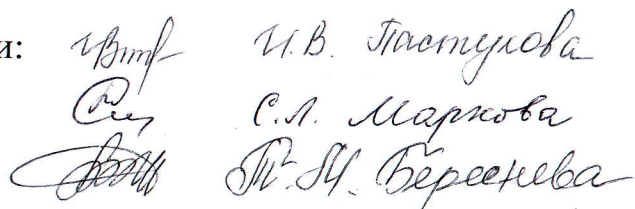 и: И. В. Пастухова
С. Л. Маркова
Т. М. Береснева